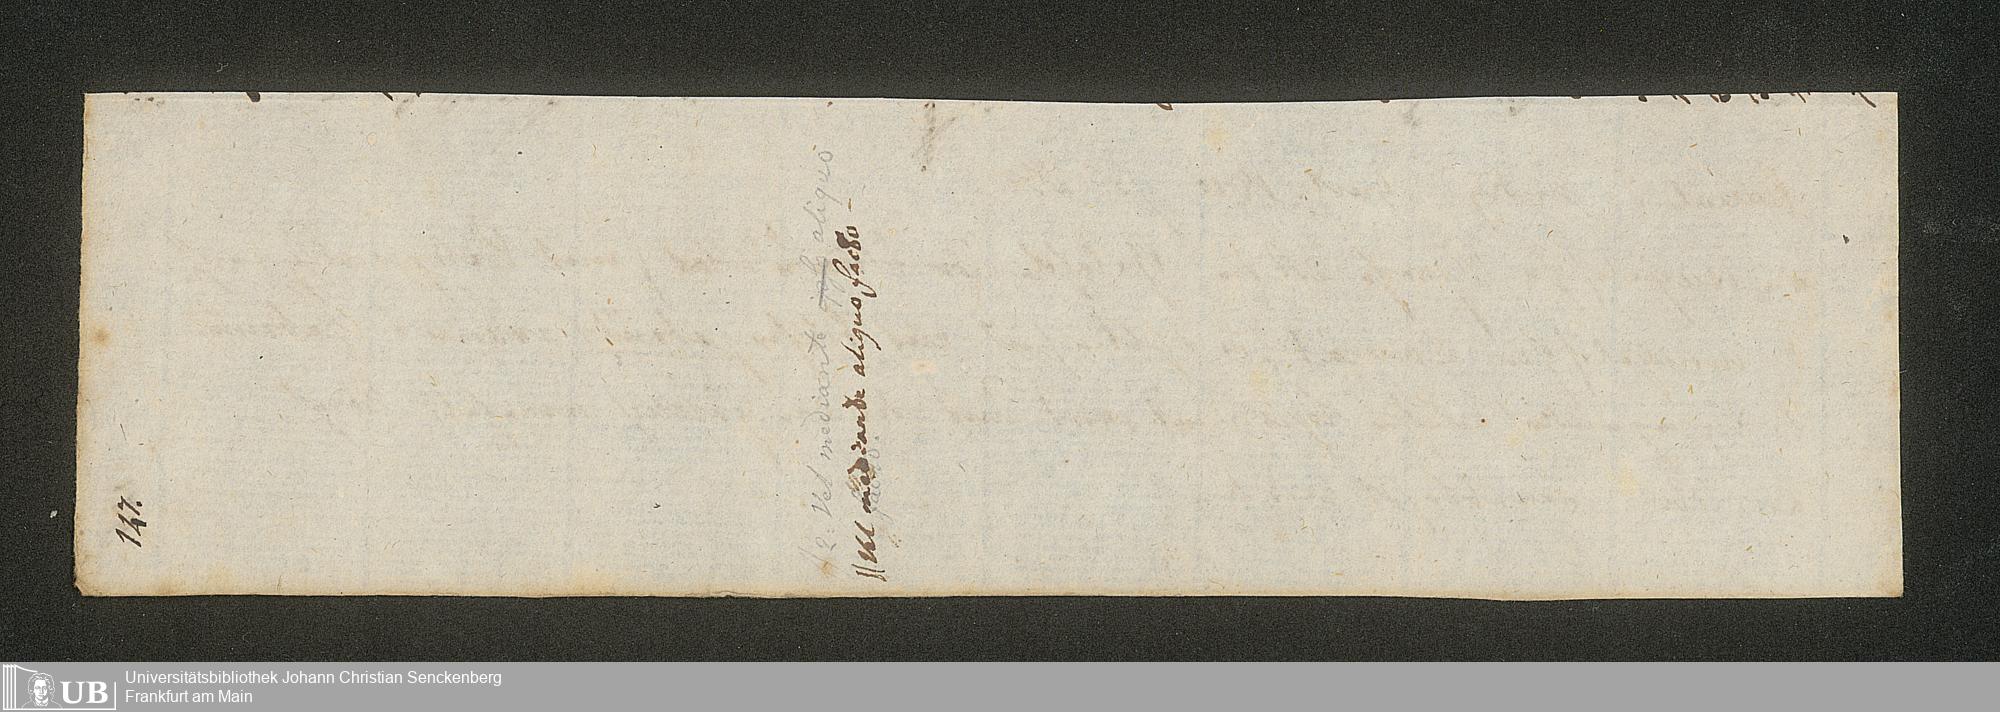 147.
/2. Vel mediante aliquo
facto.
// Vel mediante aliquo facto —
UB
Universitätsbibliothek Johann Christian Senckenberg
Frankfurt am Main